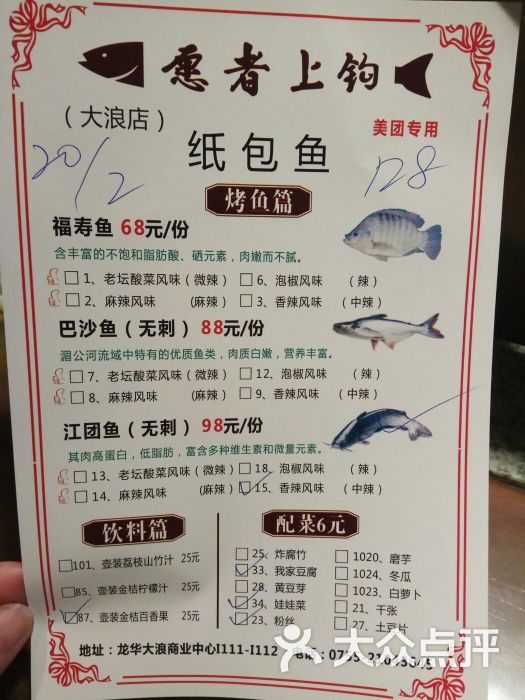 愿者上钩
（大浪店）
美团专用
纸包鱼
20/2
128
烤鱼篇
福寿鱼 68元/份
含丰富的不饱和脂肪酸、硒元素，肉嫩而不腻。
1、老坛酸菜风味（微辣） 6、泡椒风味 （辣）
2、麻辣风味 （麻辣） 3、香辣风味 （中辣）
巴沙鱼（无刺）88元/份
湄公河流域中特有的优质鱼类，肉质白嫩，营养丰富。
7、老坛酸菜风味（微辣） 12、泡椒风味 （辣）
8、麻辣风味 （麻辣） 9、香辣风味 （中辣）
江团鱼（无刺）98元/份
其肉高蛋白，低脂肪，富含多种维生素和微量元素。
13、老坛酸菜风味（微辣） 18、泡椒风味 （辣）
14、麻辣风味 （麻辣） 15、香辣风味 （中辣）
饮料篇
101、壶装荔枝山竹汁 25元
85、壶装金桔柠檬汁 25元
87、壶装金桔百香果 25元
配菜6元
25、炸腐竹 1020、磨芋
33、我家豆腐 1024、冬瓜
28、黄豆芽 1023、白萝卜
34、娃娃菜 21、干张
23、粉丝 27、土豆片
地址：龙华大浪商业中心I111-I112 电话：
大众点评